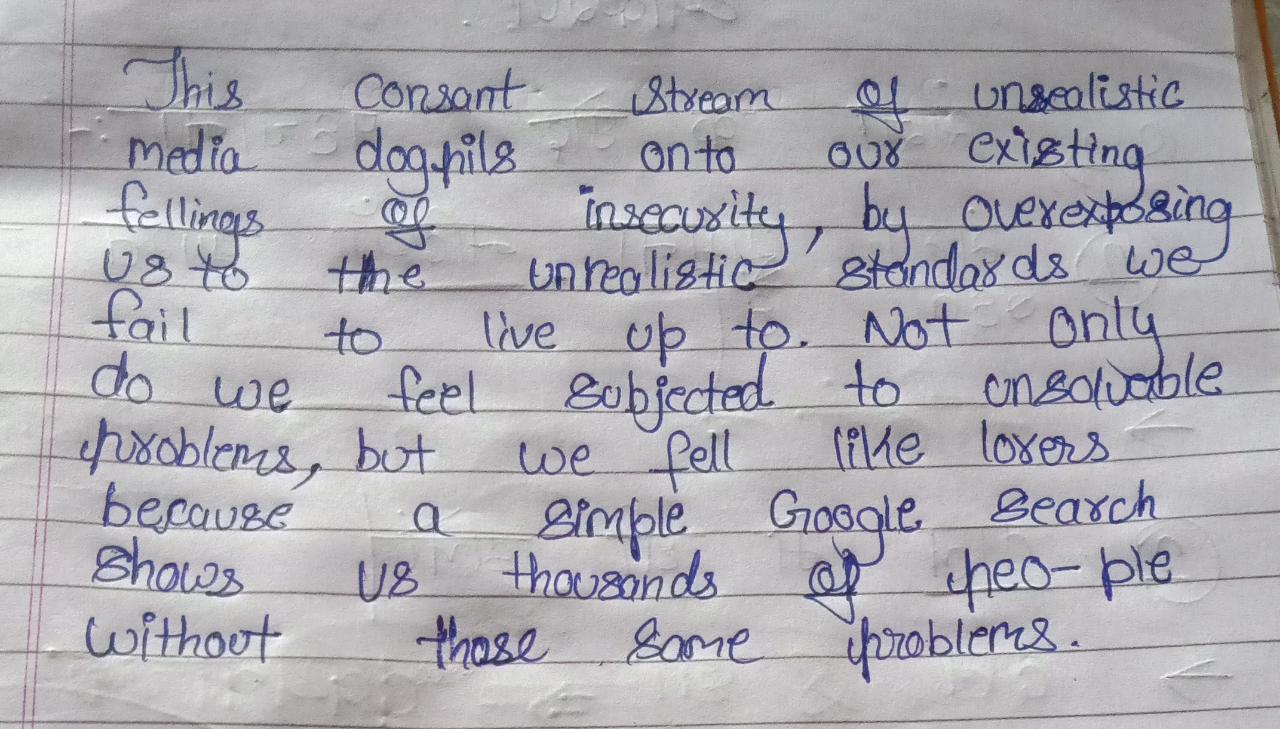 This consant stream of unrealistic
media dogpils onto our existing
fellings of insecurity, by overexposing
us to the unrealistic standards we
fail to live up to. Not only
do we feel subjected to unsolvable
problems, but we fell like lorers
because a simple Google search
shows us thousands of peo-ple
without those same problems.